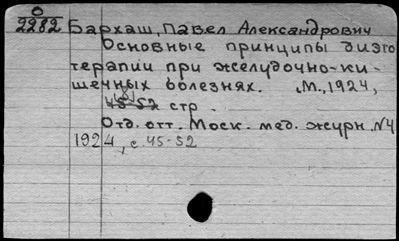 О
2282 Бархаш, Павел Александрович
Основные принципы диэто
терапии при желудочно-ки-
шечных болезнях. М., 1924,
45-52 стр.
Отд. отт. Моск. мед. журн. №4
1924, с. 45-52